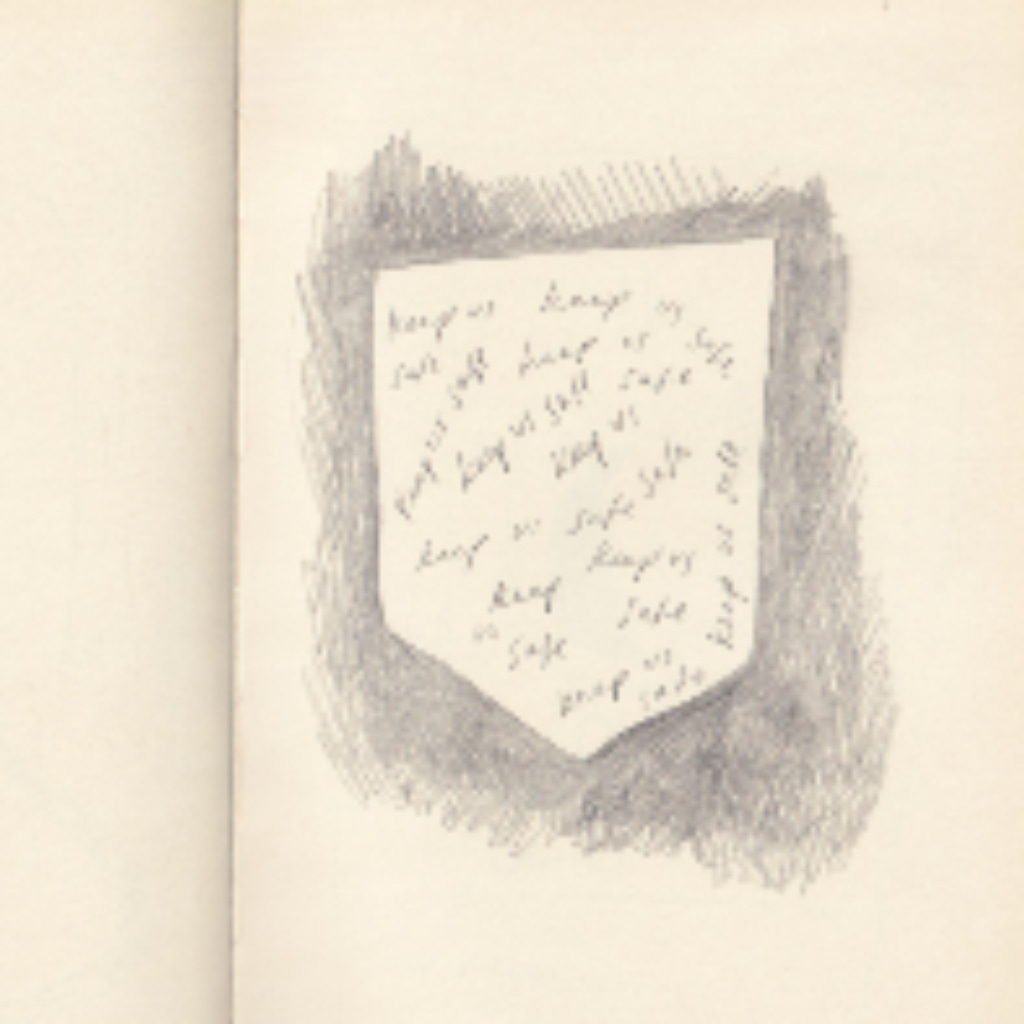 keep us safe
keep us safe
keep us safe
keep us safe
keep us safe
keep us safe
keep us safe
keep us safe
keep us safe
keep us safe
keep us safe